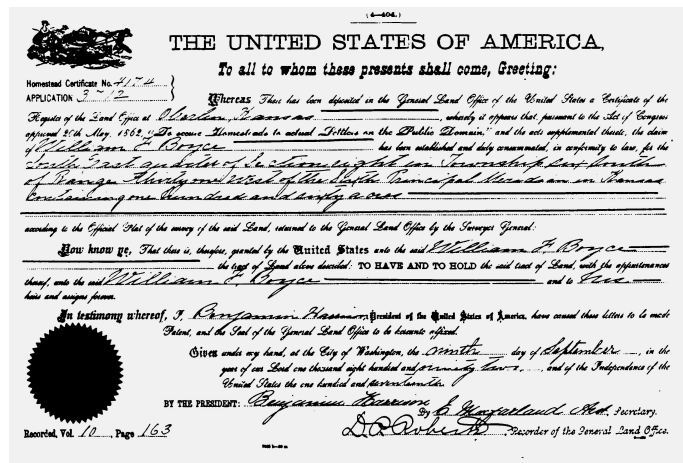 (4—404.)
THE UNITED STATES OF AMERICA,
To all to whom these presents shall come, Greeting:
Homestead Certificate No. 4174
APPLICATION 3712
Whereas There has been deposited in the General Land Office of the United States a Certificate of the
Register of the Land Office at Oberlin, Kansas, whereby it appears that, pursuant to the Act of Congress
approved 20th May, 1862, "To secure Homesteads to actual Settlers on the Public Domain," and the acts supplemental thereto, the claim
of William F Boyce has been established and duly consummated, in conformity to law, for the
South East quarter of Section eight in Township six South
of Range thirty one West of the Sixth Principal Meridian in Kansas
containing one hundred and sixty acres
according to the Official Plat of the survey of the said Land, returned to the General Land Office by the Surveyor General:
Now know ye, That there is, therefore, granted by the United States unto the said William F. Boyce
the tract of Land above described: TO HAVE AND TO HOLD the said tract of Land, with the appurtenances
thereof, unto the said William F Boyce and to his
heirs and assigns forever.
In testimony whereof, I, Benjamin Harrison, President of the United States of America, have caused these letters to be made
Patent, and the Seal of the General Land Office to be hereunto affixed.
Given under my hand, at the City of Washington, the ninth day of September, in the
year of our Lord one thousand eight hundred and ninety two, and of the Independence of the
United States the one hundred and seventeenth
BY THE PRESIDENT: Benjamin Harrison
By E Macfarland Asst. Secretary.
D. P. Roberts Recorder of the General Land Office.
Recorded, Vol. 10, Page 163